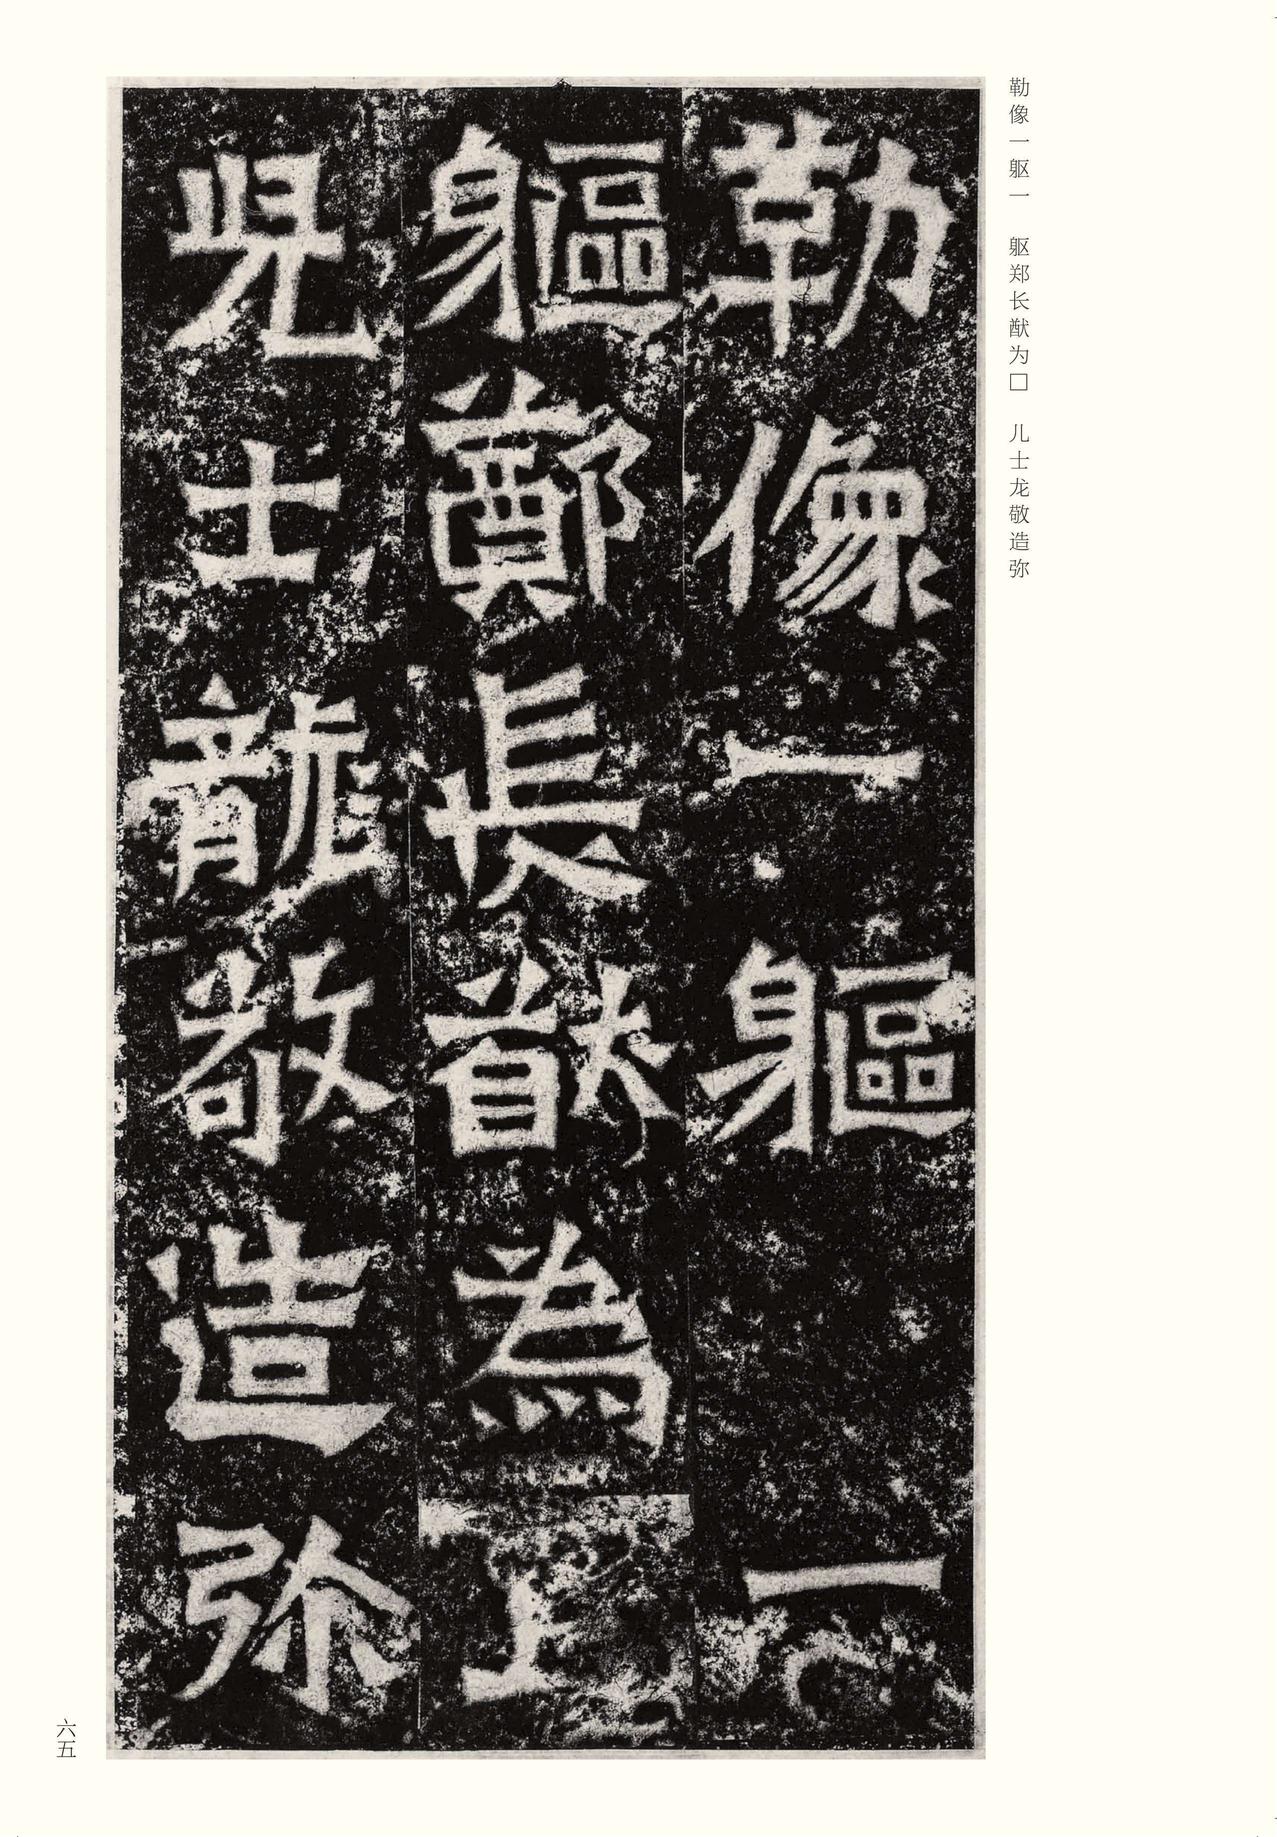 勒像一躯一　躯郑长猷为□　儿士龙敬造弥
勒像一軀一
軀鄭長猷為
児士龍敬造弥
六五